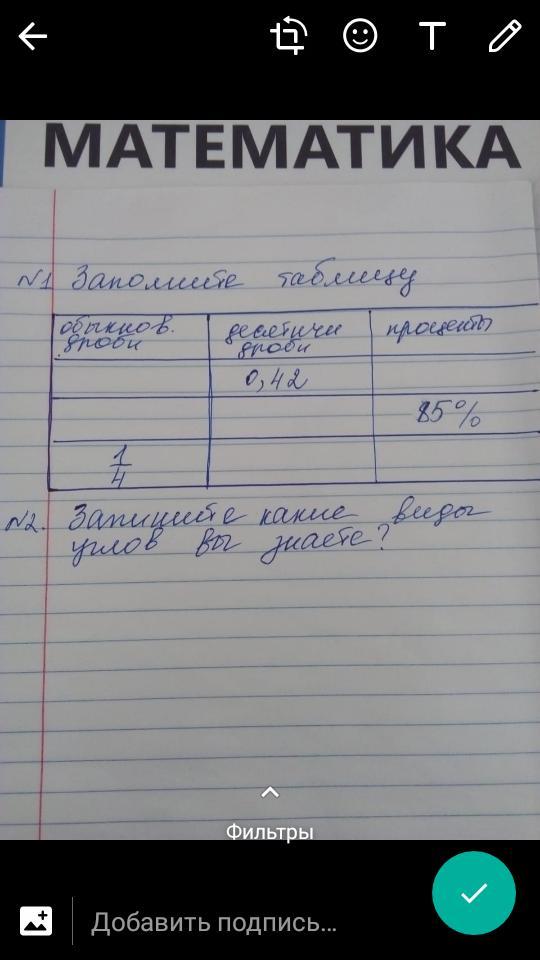 T
МАТЕМАТИКА
№1 Заполните таблицу
обыкнов. дроби
десятичн дроби
проценты
0,42
85%
1/4
№2. Запишите какие виды
углов вы знаете?
Фильтры
Добавить подпись...